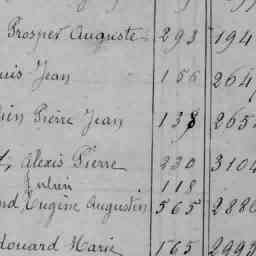 Prosper Auguste 293 194
uis Jean 156 264
ien Pierre Jean 138 265
t, Alexis Pierre 230 3104
Julien 118
nd, Eugène Augustin 565 2880
douard Marie 165 2993